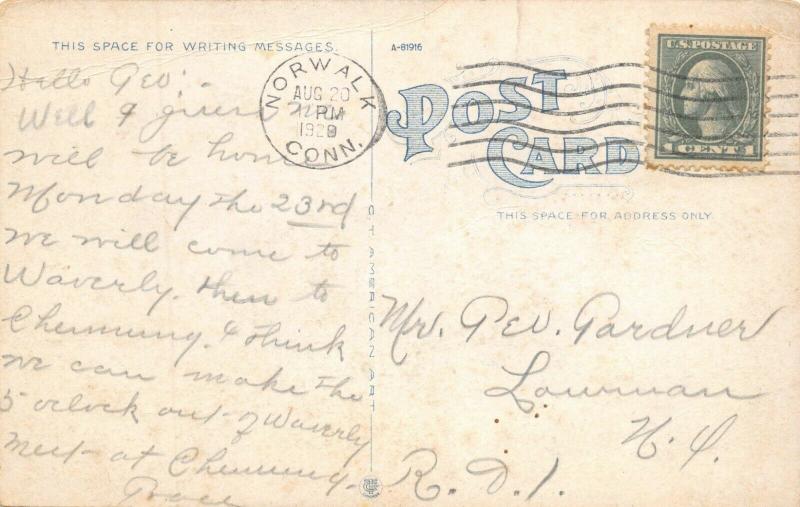 THIS SPACE FOR WRITING MESSAGES.
Hello Geo:-
Well I guess we
will be home
Monday the 23rd
we will come to
Waverly. then to
Chemung. I think
we can make the
5 oclock out of Waverly
meet at Chemung.
Grace
C.T. AMERICAN ART
A-81916
NORWALK
AUG 20
PM
1920
CONN.
POST
CARD
U.S. POSTAGE
1 CENT 1
THIS SPACE FOR ADDRESS ONLY.
Mr. Geo. Gardner
Lowman
N.Y.
R.D.1.